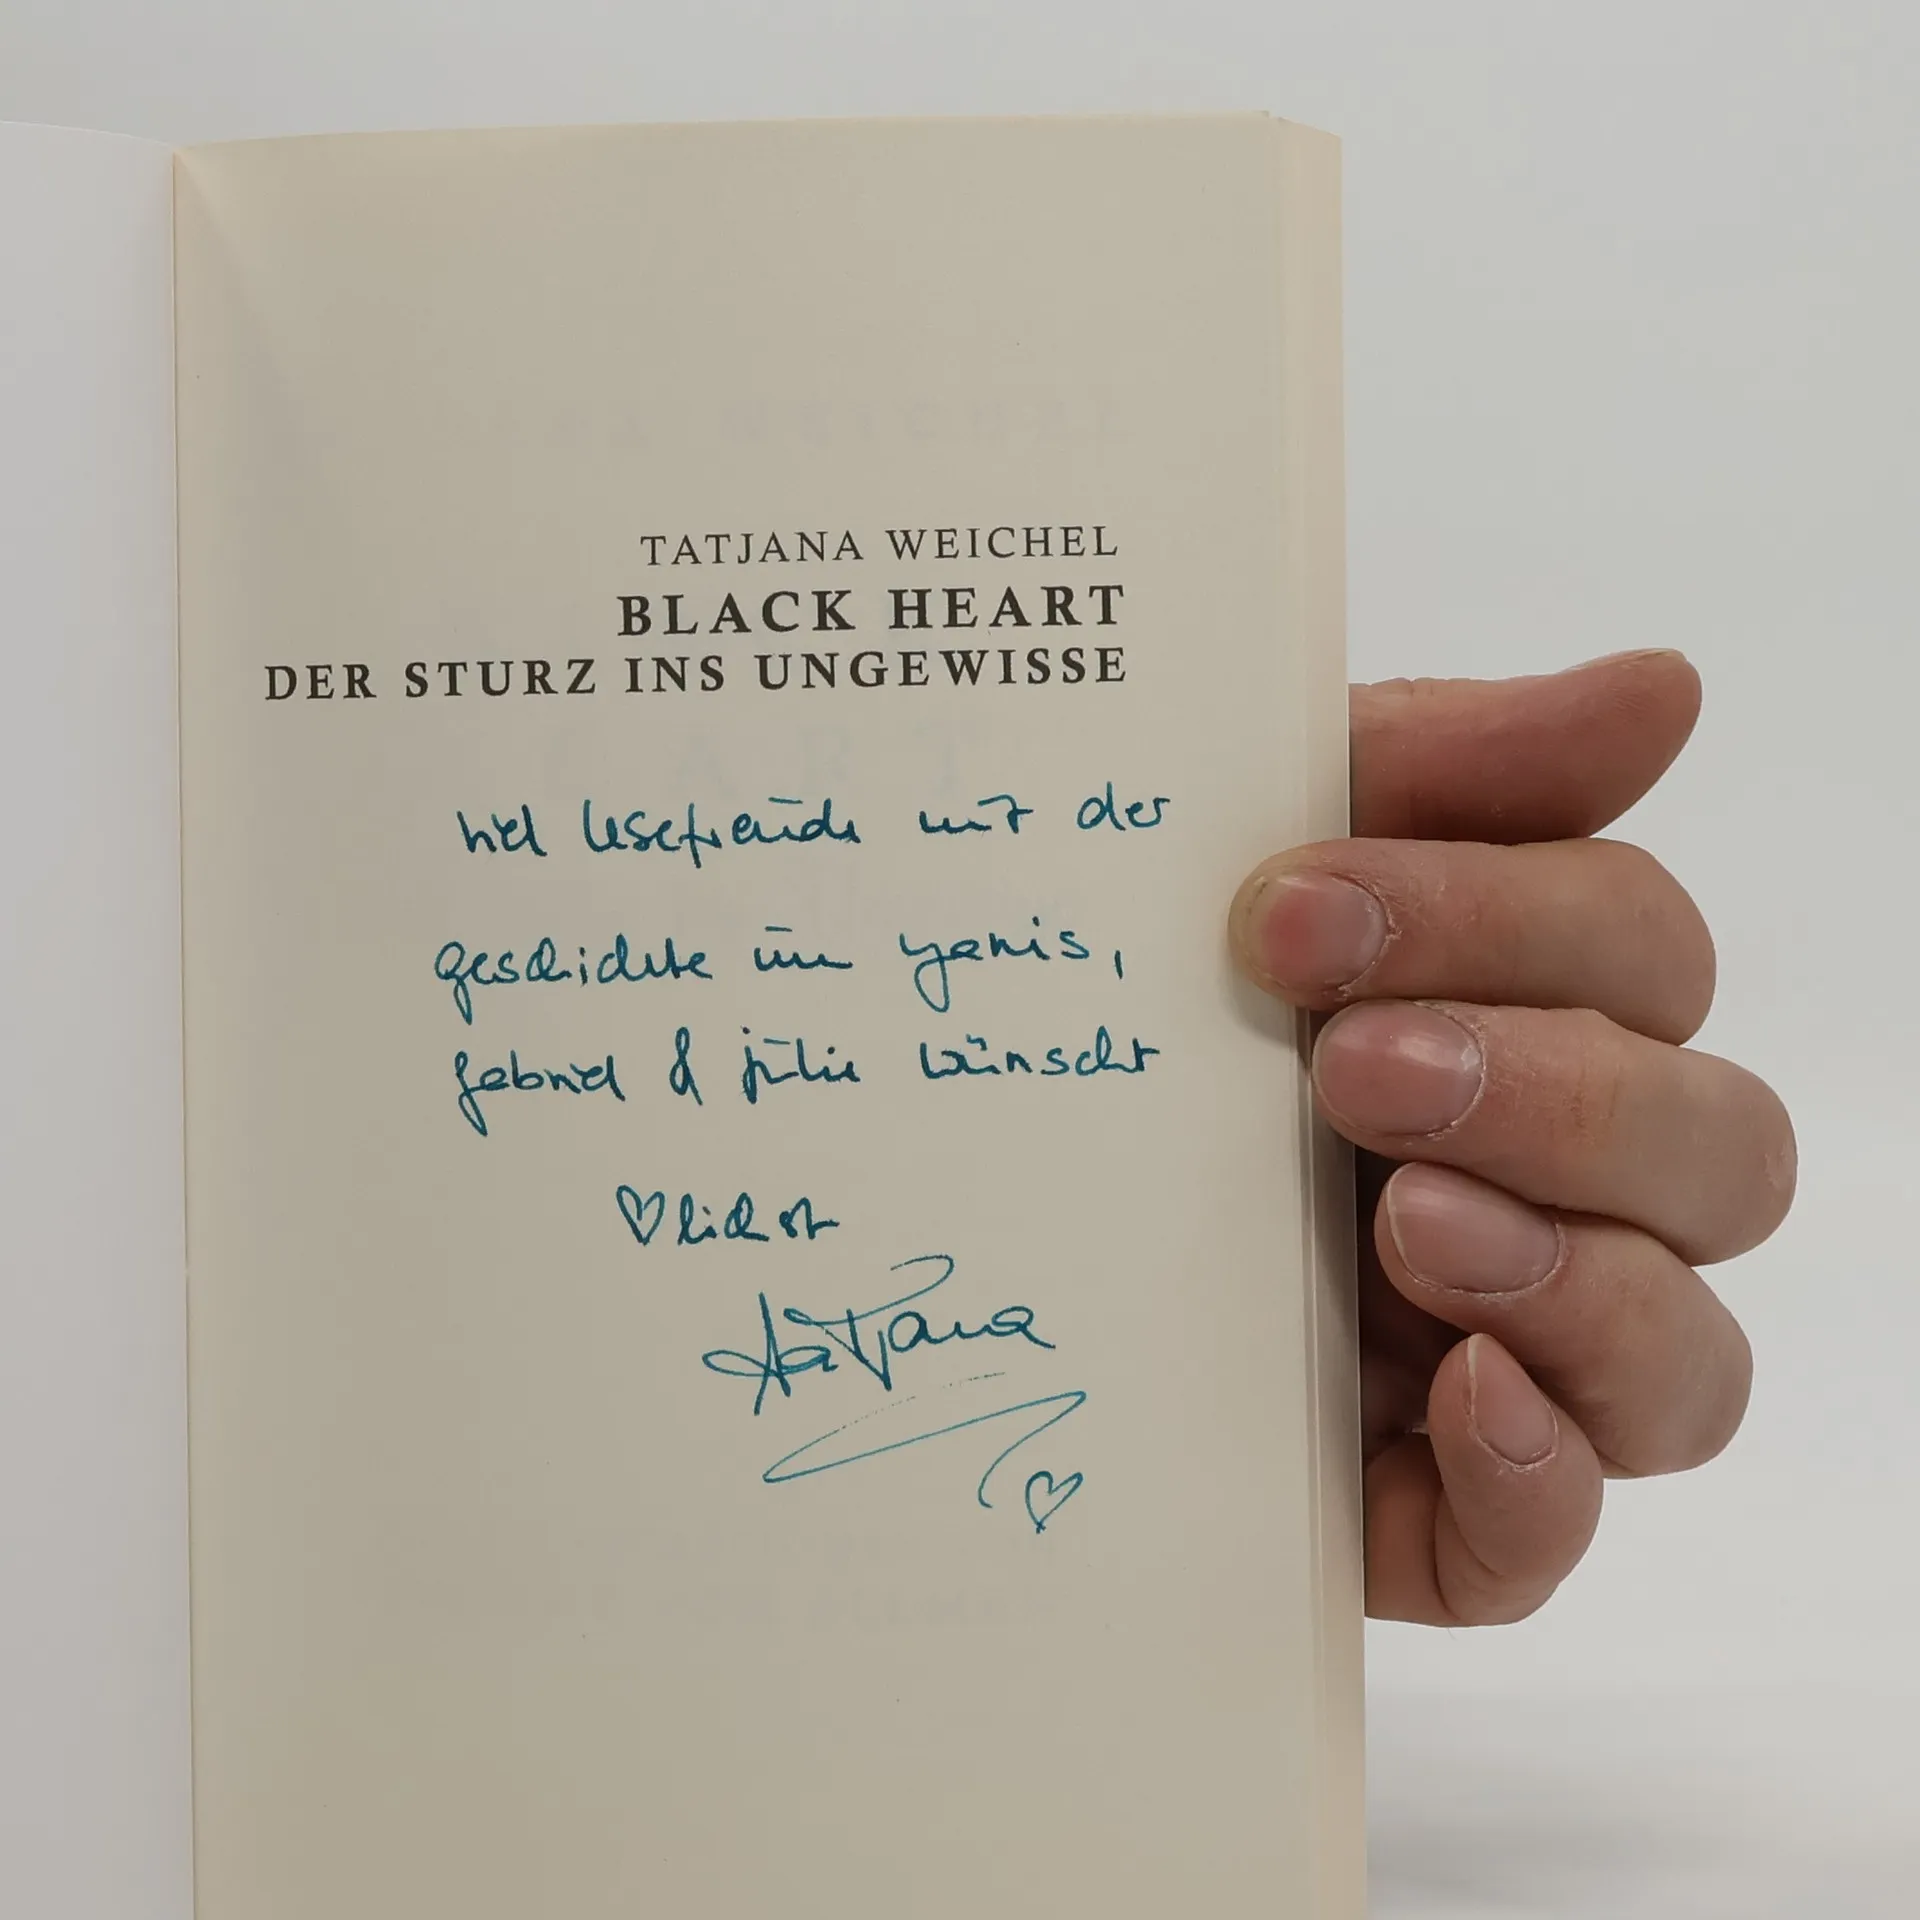 TATJANA WEICHEL
BLACK HEART
DER STURZ INS UNGEWISSE
viel lesefreude mit der
geschichte um yanis,
gabriel & julie wünscht
♡lichst
Tatjana
♡